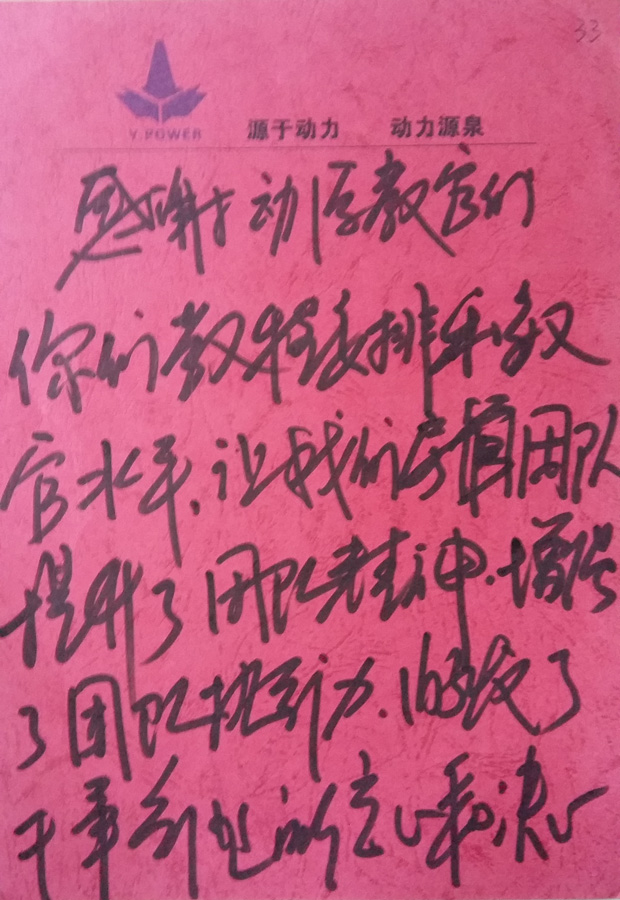 33
Y.POWER 源于动力 动力源泉
感谢动源教官们
你们教程安排和教
官水平,让我们房管团队
提升了团队精神.增强
了团队执行力.激发了
干事创业的信心和决心